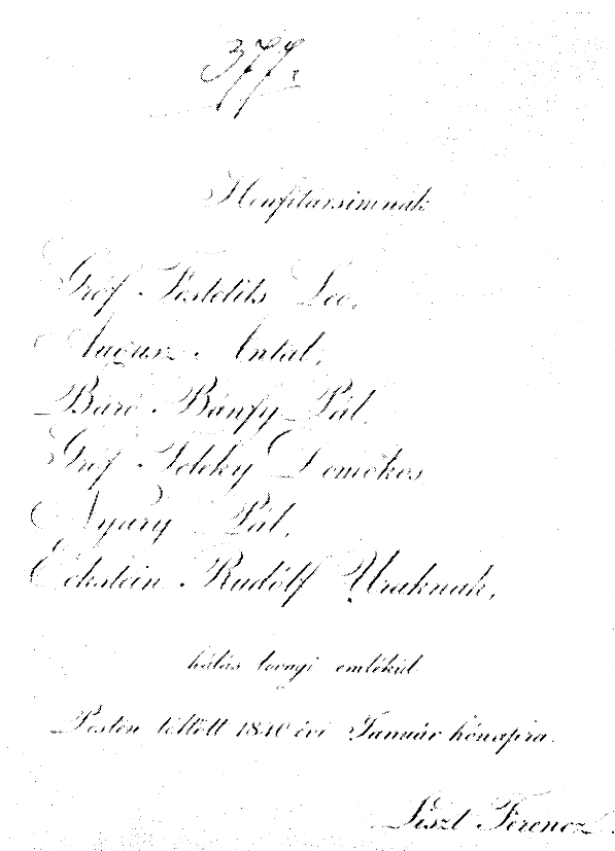 377.
Honfitársimnak
Gróf Festetits Leo,
Augusz Antal,
Báró Bánfy Pál
Gróf Teleky Domokos
Nyáry Pál,
Eckstein Rudólf Uraknak,
hálás lovagi emlékül
Pesten töltött 1840 évi Január hónapjra.
Liszt Ferencz